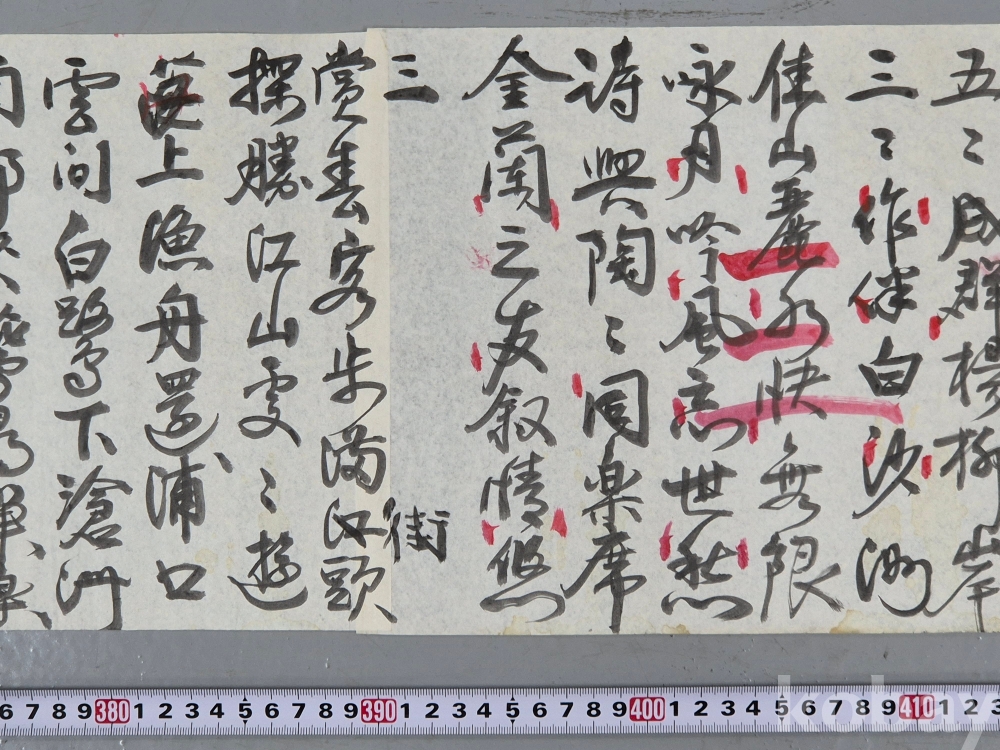 五〻成群楊柳岸
三〻作伴白沙洲
佳山麗水快無限
咏月吟風忘世愁
詩興陶〻同樂席
金蘭之友叙情悠
三 街
賞春客步滿江頭
探勝江山處〻遊
海上漁舟還浦口
雲間白鷺下滄洲
6 7 8 9 380 1 2 3 4 5 6 7 8 9 390 1 2 3 4 5 6 7 8 9 400 1 2 3 4 5 6 7 8 9 410 1 2 3
kobay